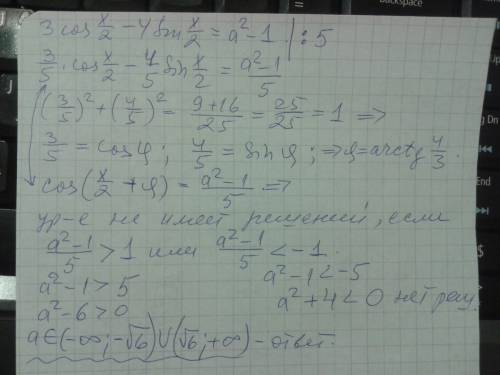 3 cos x/2 − 4 sin x/2 = a² − 1 | : 5
3/5 · cos x/2 − 4/5 sin x/2 = (a² − 1)/5
(3/5)² + (4/5)² = (9+16)/25 = 25/25 = 1 =>
3/5 = cos φ ; 4/5 = sin φ ; => φ = arctg 4/3.
cos(x/2 + φ) = (a² − 1)/5 =>
ур-е не имеет решений, если
(a² − 1)/5 > 1 или (a² − 1)/5 < −1.
a² − 1 > 5 a² − 1 < −5
a² − 6 > 0 a² + 4 < 0 нет реш.
a ∈ (−∞; −√6) ∪ (√6; +∞) – ответ.
Backspace